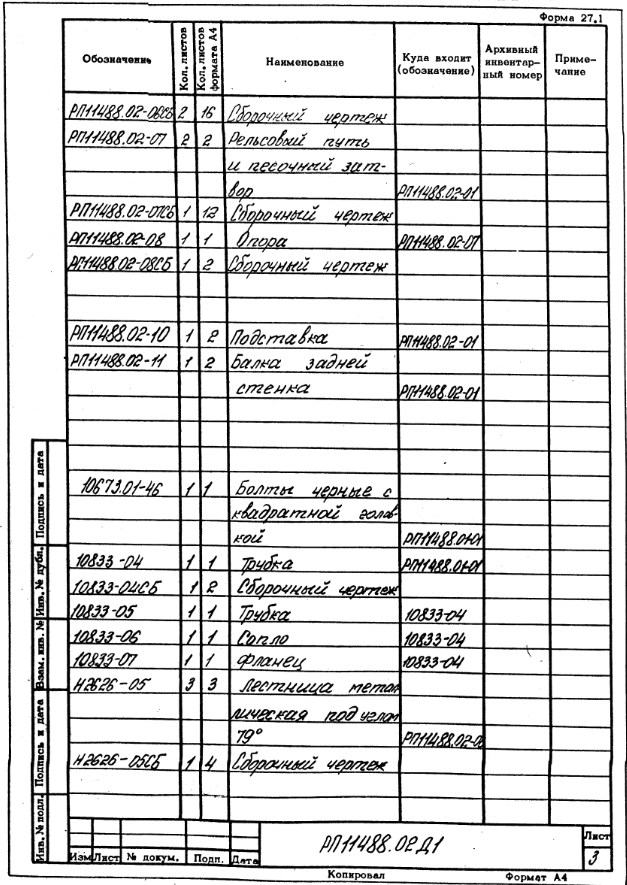 Форма 27.1
Обозначение Кол. листов Кол. листов формата А4 Наименование Куда входит (обозначение) Архивный инвентарный номер Примечание
РП11488.02-06СБ 2 16 Сборочный чертеж
РП11488.02-07 2 2 Рельсовый путь
и песочный зат-
вор РП11488.02-01
РП11488.02-07СБ 1 12 Сборочный чертеж
РП11488.02-08 1 1 Опора РП11488.02-07
РП11488.02-08СБ 1 2 Сборочный чертеж
РП11488.02-10 1 2 Подставка РП11488.02-01
РП11488.02-11 1 2 Балка задней
стенка РП11488.02-01
10673.01-46 1 1 Болты черные с
квадратной голов-
кой РП11488.01-01
10833-04 1 1 Трубка РП11488.01-01
10833-04СБ 1 2 Сборочный чертеж
10833-05 1 1 Трубка 10833-04
10833-06 1 1 Сопло 10833-04
10833-07 1 1 Фланец 10833-04
Н2626-05 3 3 Лестница метал
лическая под углом
79° РП11488.02-0
Н2626-05СБ 1 4 Сборочный чертеж
Инв. № подл. Подпись и дата Взам. инв. № Инв. № дубл. Подпись и дата
РП11488.02Д1
Лист
3
Изм Лист № докум. Подп. Дата
Копировал Формат А4